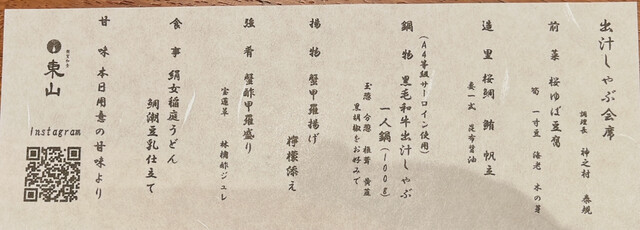 出汁しゃぶ会席
調理長 神之村 泰規
前菜 桜ゆば豆腐
筍 一寸豆 海老 木の芽
造里 桜鯛 鮪 帆立
妻一式 昆布醤油
(A4等級サーロイン使用)
鍋物 黒毛和牛出汁しゃぶ
一人鍋(100g)
玉葱 分葱 根菜 黄韮
黒胡椒をお好みで
揚物 蟹甲羅揚げ
檸檬添え
強肴 蟹酢甲羅盛り
宝蓮草 林檎酢ジュレ
食事 絹女稲庭うどん
鯛潮豆乳仕立て
甘味 本日用意の甘味より
東山
Instagram